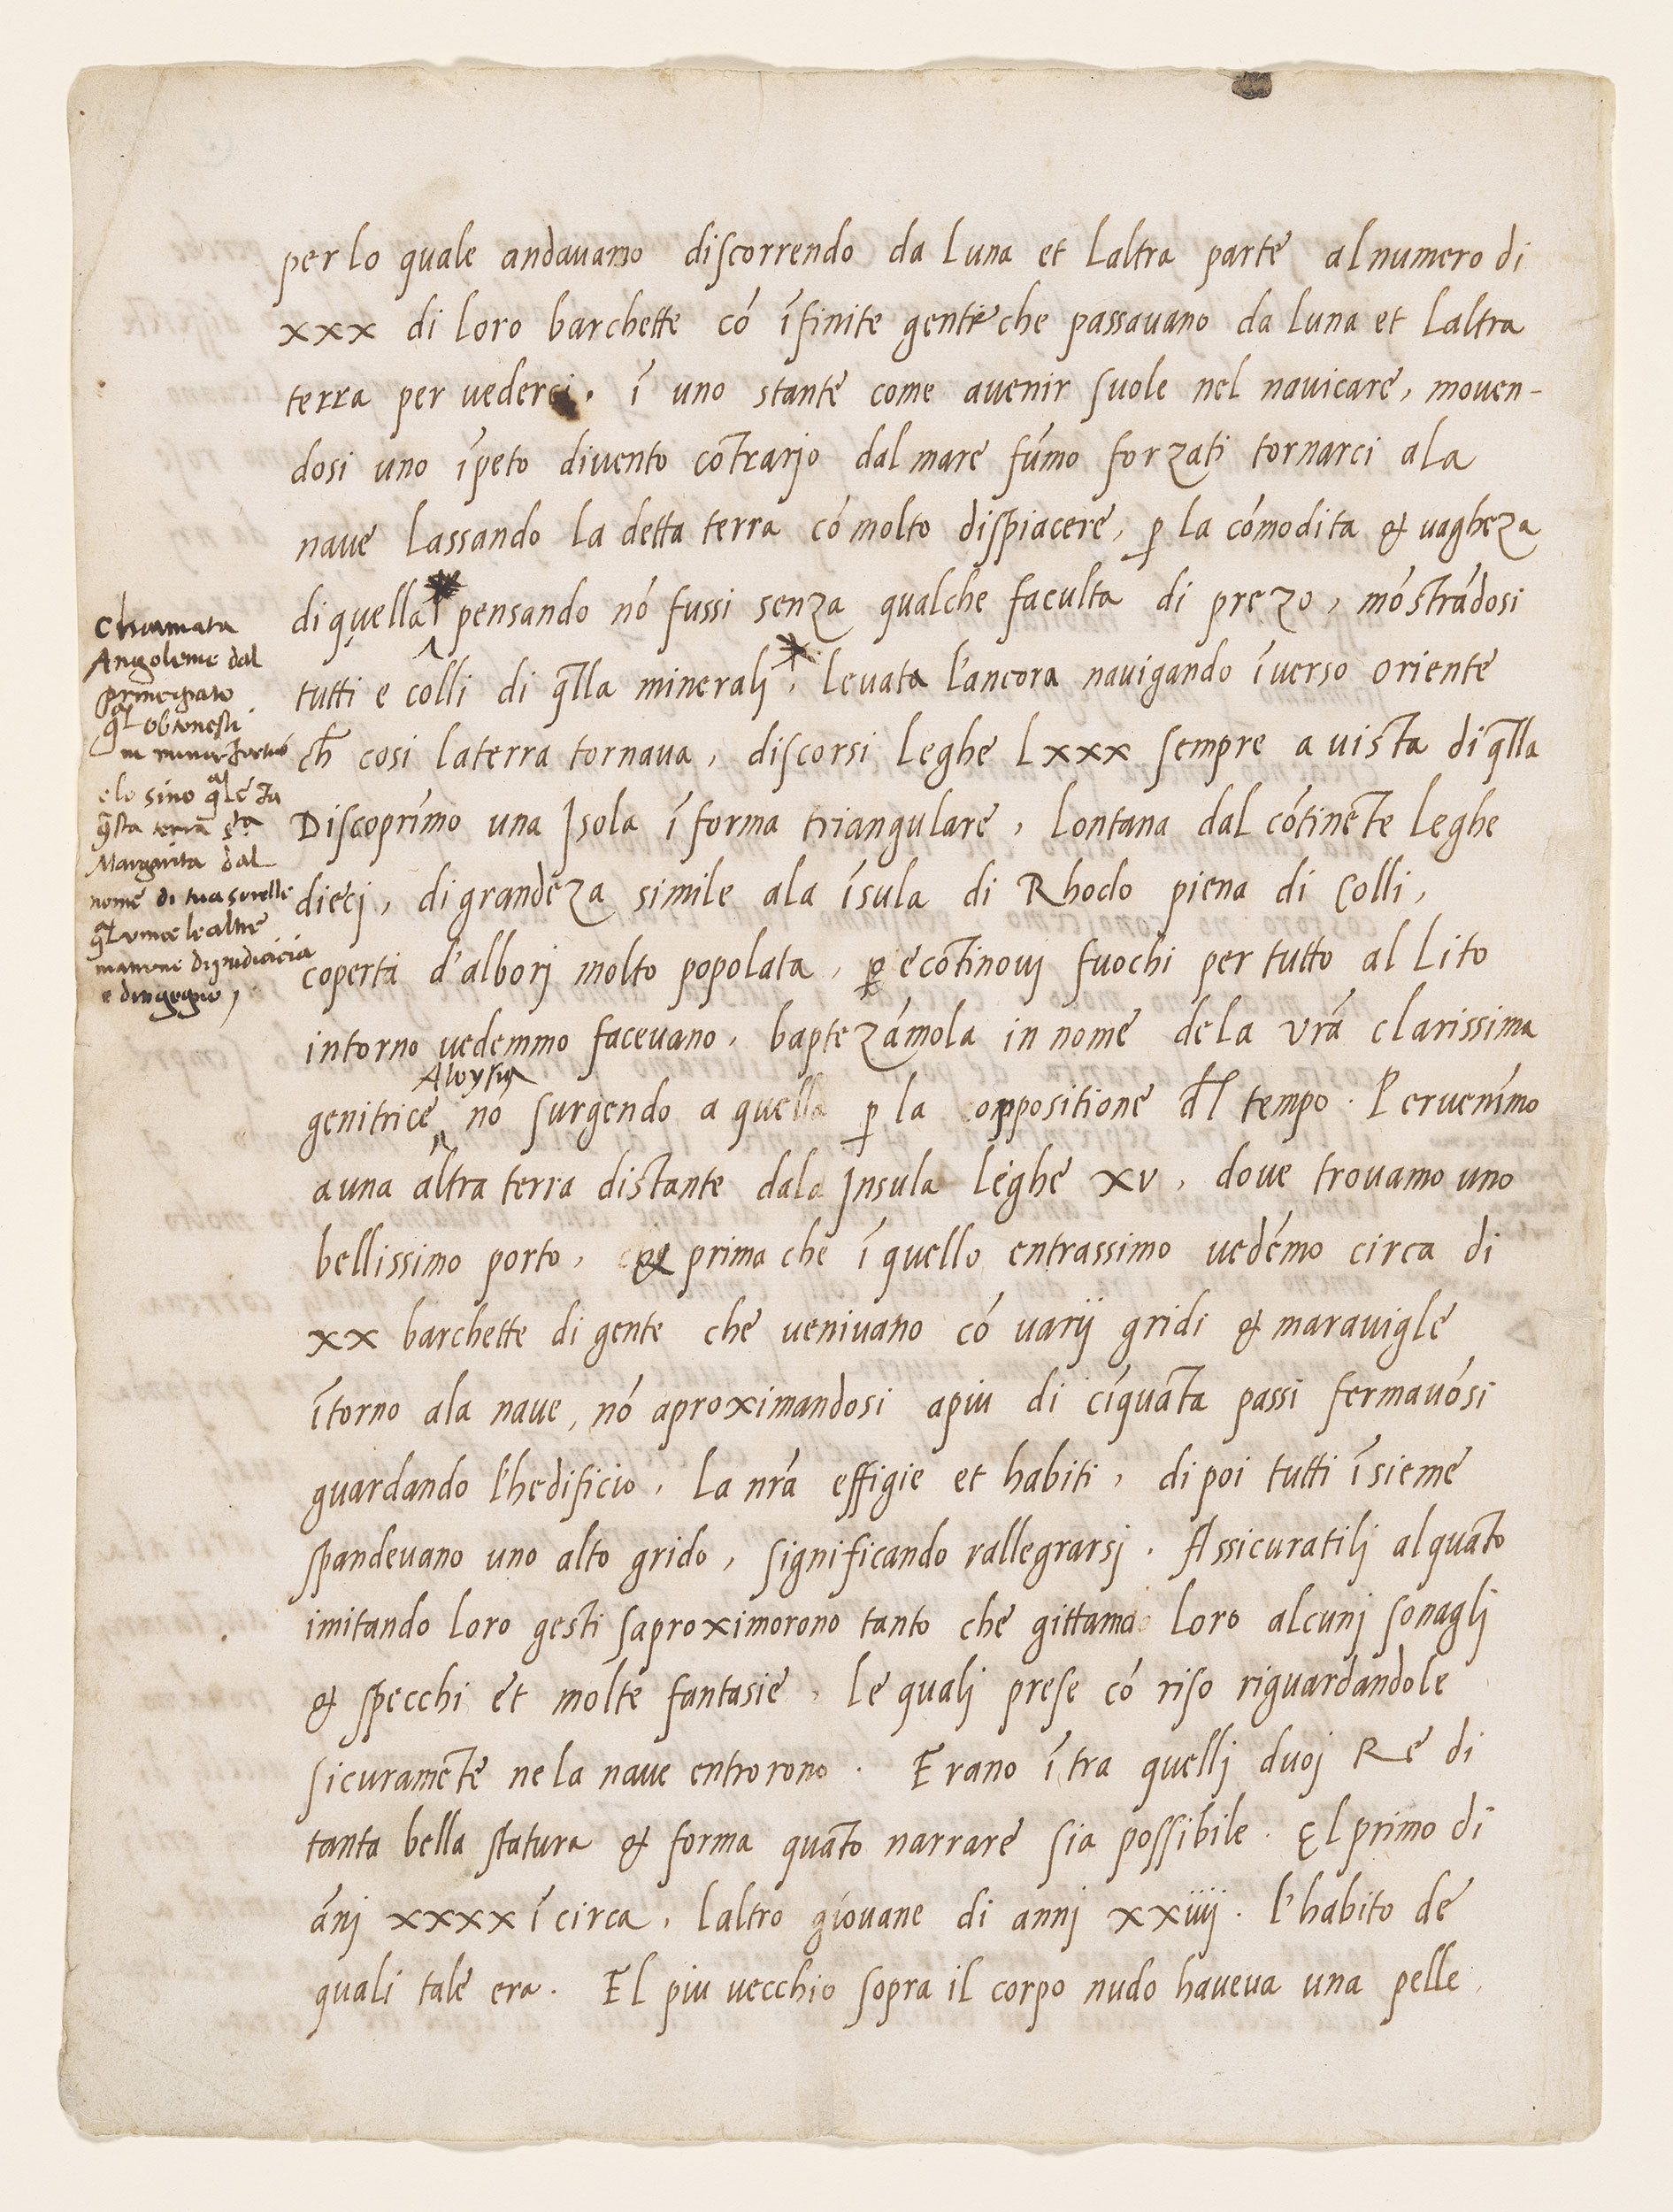 per lo quale andavamo discorrendo da luna et laltra parte al numero di
xxx di loro barchette cō ĩfinite gente che passavano da luna et laltra
terra per vederci. ĩ uno stante come avenir suole nel navicare, moven-
dosi uno ĩpeto divento cōtrario dal mare fūmo forzati tornarci a la
nave lassando la detta terra cō molto dispiacere, ꝑ la cōmodita & vagheza
di quella pensando nō fussi senza qualche faculta di prezo, mōstrādosi
tutti e colli di q̄lla minerali. levata l'ancora navigando ĩverso oriente
ch̄ cosi la terra tornava, discorsi leghe Lxxx sempre a vista di q̄lla
Discoprīmo una Isola ĩ forma triangulare, lontana dal cōtinēte leghe
dieci, di grandeza simile a la ĩsula di Rhodo piena di Colli,
coperta d'albori molto popolata, ꝑ e cōtinovi fuochi per tutto al lito
intorno vedemmo facevano. baptezāmola in nome de la vr̄a clarissima
Aloysia
genitrice nō surgendo a quella ꝑ la oppositione dl̄ tempo. Pervenīmo
a una altra terra distante dala Insula leghe xv, dove trovamo uno
bellissimo porto, & prima che ĩ quello entrassimo vedēmo circa di
xx barchette di gente che venivano cō varij gridi & maravigle
ĩtorno ala nave, nō aproximandosi apiu di cīquāta passi fermavōsi
guardando l'hedificio, la nr̄a effigie et habiti, di poi tutti ĩsieme
spandevano uno alto grido, significando rallegrarsi. Assicuratili alquāto
imitando loro gesti saproximorono tanto che gittamo loro alcuni sonagli
& specchi et molte fantasie, le quali prese cō riso riguardandole
sicuramēte ne la nave entrorono. Erano ĩtra quelli duoi Re di
tanta bella statura & forma quāto narrare sia possibile. El primo di
āni xxxx ĩ circa, laltro giovane di anni xxiiij. l'habito de
quali tale era. El piu vecchio sopra il corpo nudo haveva una pelle
chiamata
Angoleme dal
principato
q̄l obtenesti
in minor fortuna
e lo sino q̄l e ta
q̄sta terra sta
Margarita dal
nome di tua sorella
q̄l vince le altre
matrone di pudicicia
e d'ingegno